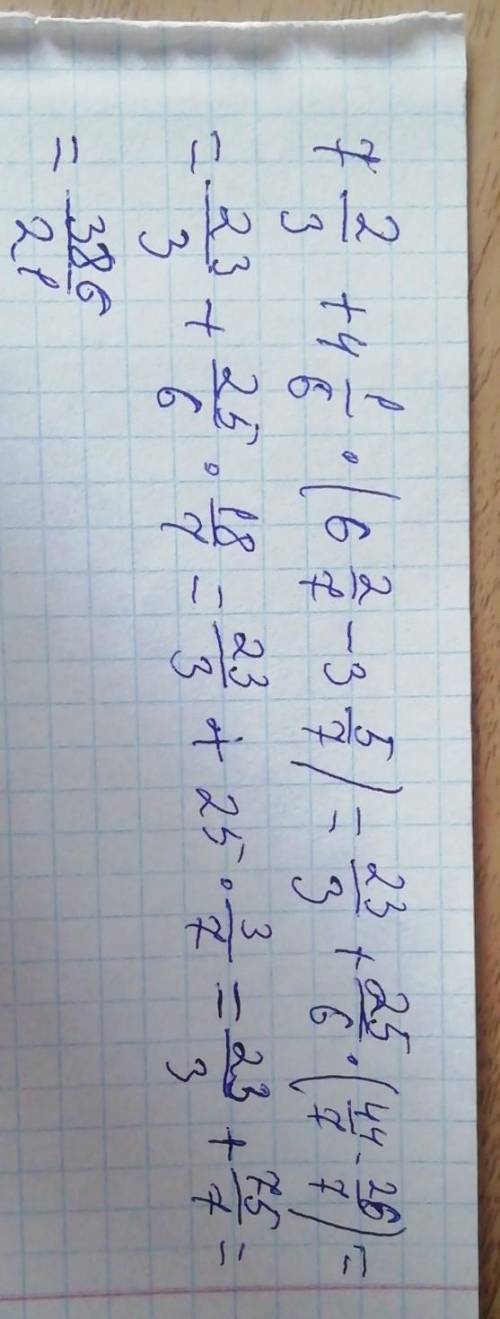 7 2/3 + 4 1/6 · (6 2/7 - 3 5/7) = 23/3 + 25/6 · (44/7 - 26/7) =
= 23/3 + 25/6 · 18/7 = 23/3 + 25 · 3/7 = 23/3 + 75/7 =
= 386/21